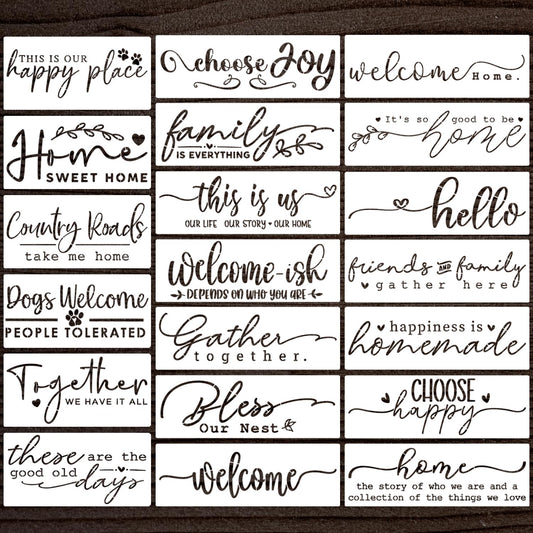 THIS IS OUR
happy place
Home
SWEET HOME
Country Roads
take me home
Dogs Welcome
PEOPLE TOLERATED
Together
WE HAVE IT ALL
these are the
good old
days
choose Joy
family
IS EVERYTHING
this is us
OUR LIFE OUR STORY ♥ OUR HOME
Welcome-ish
DEPENDS ON WHO YOU ARE
Gather
together.
Bless
Our Nest
welcome
welcome
Home.
It's so good to be
home
hello
friends AND family
gather here
happiness is
homemade
CHOOSE
happy
home
the story of who we are and a
collection of the things we love